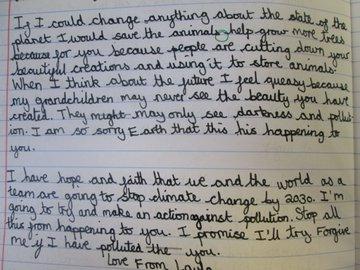 If I could change anything about the state of the
planet I would save the animals help grow more trees
because for you because people are cutting down your
beautiful creations and using it to store animals.
When I think about the future I feel queasy because
my grandchildren may never see the beauty you have
created. They might may only see darkness and pollut-
ion. I am so sorry Earth that this his happening to
you.
I have hope and faith that we and the world as a
team are going to stop climate change by 2030. I'm
going to try and make an action against pollution. Stop all
this from happening to you. I promise I'll try Forgive
me if I have polluted the you.
Love From